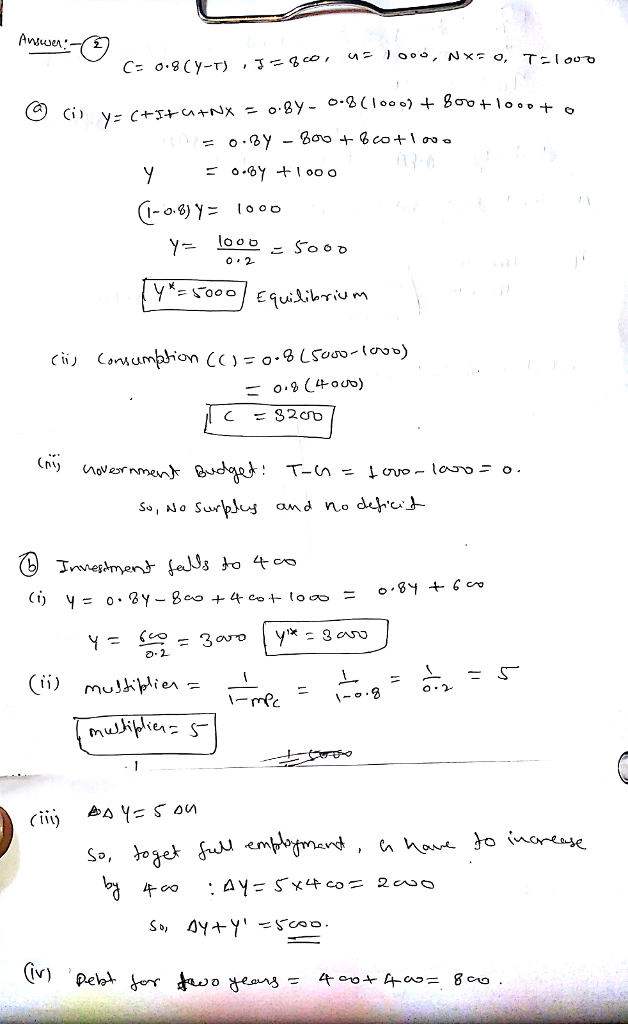 Answer:- ②
C= 0.8(Y-T), I=800, G=1000, NX=0, T=1000
ⓐ (i) Y= C+I+G+NX = 0.8Y- 0.8(1000)+800+1000+0
= 0.8Y - 800 + 800+1000
Y = 0.8Y +1000
(1-0.8)Y= 1000
Y= 1000/0.2 = 5000
Y*=5000 Equilibrium
(ii) Consumption (C)=0.8(5000-1000)
= 0.8(4000)
C = 3200
(iii) Government Budget: T-G = 1000-1000=0.
So, No surplus and no deficit
ⓑ Investment falls to 400
(i) Y= 0.8Y-800+400+1000 = 0.8Y + 600
Y= 600/0.2 = 3000 Y'*=3000
(ii) multiplier = 1/1-mpc = 1/1-0.8 = 1/0.2 = 5
multiplier= 5
(iii) ΔY=5 ΔG
So, to get full employment, G have to increase
by 400 : ΔY= 5x400= 2000
So, ΔY+Y' =5000.
(iv) Debt for two years= 400+400=800.